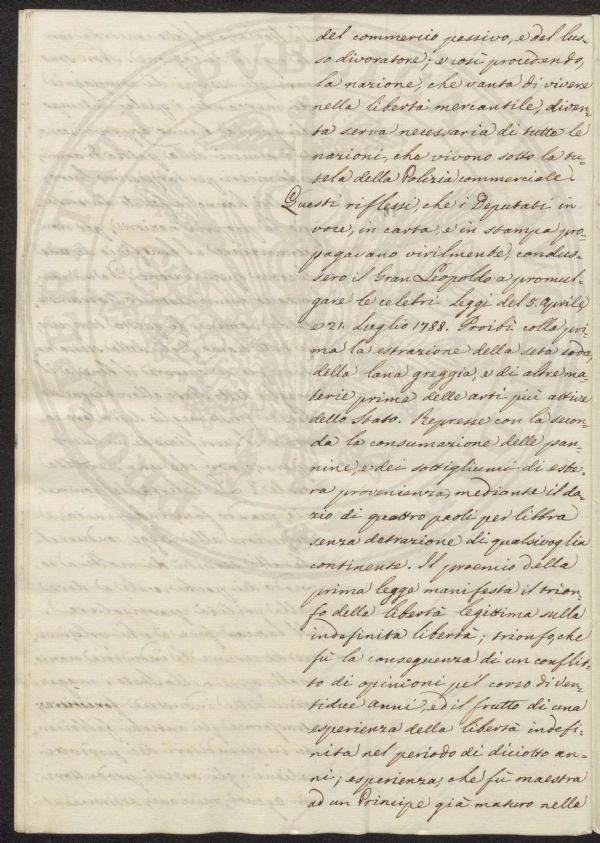 del commercio passivo, e del lus-
so divoratore; e così procedendo,
la nazione, che vanta di vivere
nella libertà mercantile, diven-
ta serva necessaria di tutte le
nazioni, che vivono sotto la tu-
tela della Polizia commerciale.
Questi riflessi, che i Deputati in
voce, in carta, e in stampa pro-
pagavano virilmente, condus-
sero il Gran Leopoldo a promul-
gare le celebri Leggi del 5. Aprile,
e 21. Luglio 1788. Proibì colla pri-
ma la estrazione della seta soda,
della lana greggia, e di altre ma-
terie prime delle arti più attive
dello Stato. Represse con la secon-
da la consumazione delle pan-
nine, e dei sottigliumi di este-
ra provenienza, mediante il da-
zio di quattro paoli per libbra
senza detrazione di qualsivoglia
continente. Il proemio della
prima legge manifesta il trion-
fo della libertà legittima sulla
indefinita libertà; trionfo, che
fù la conseguenza di un conflit-
to di opinioni pel corso di ven-
tidue anni, ed il frutto di una
esperienza della libertà indefi-
nita nel periodo di diciotto an-
ni; esperienza, che fù maestra
ad un Principe già maturo nelle